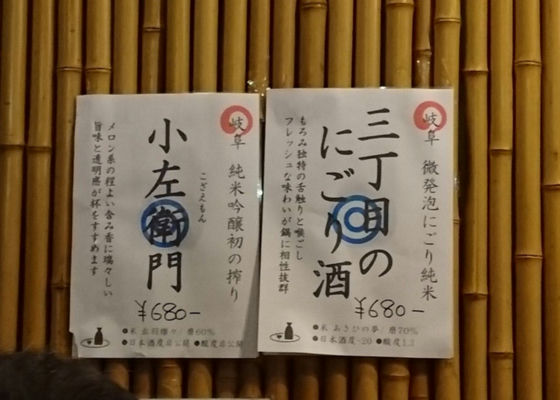 岐阜 微発泡にごり純米
三丁目の
にごり酒
もろみ独特の舌触りと喉ごし
フレッシュな味わいが鍋に相性抜群
¥680-
●米 あきひの夢/磨70%
●日本酒度-20 ●酸度1.3
岐阜 純米吟醸初の搾り
こざえもん
小左衛門
メロン系の程よい含み香に瑞々しい
旨味と透明感が杯をすすめます
¥680-
●米 出羽燦々/磨60%
●日本酒度非公開 ●酸度非公開